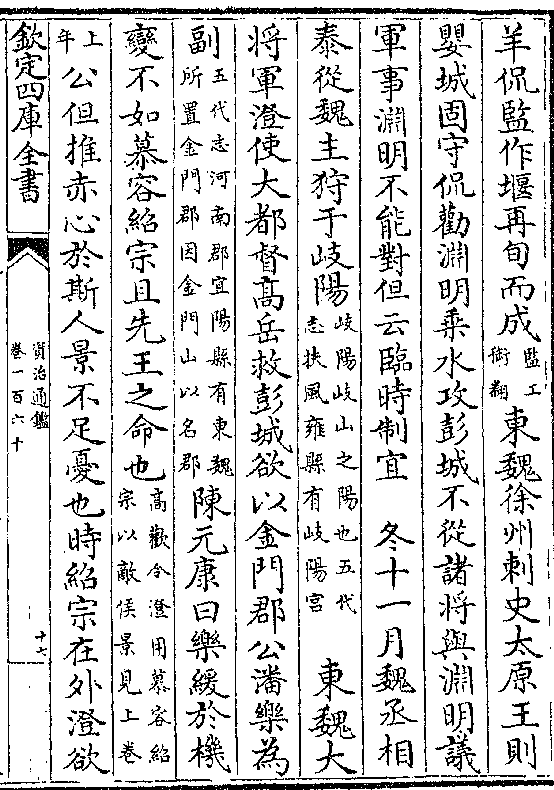 羊侃監作堰再旬而成監工
銜翻東魏徐州刺史太原王則
嬰城固守侃勸淵明乗水攻彭城不從諸將與淵明議
軍事淵明不能對但云臨時制宜　冬十一月魏丞相
泰從魏主狩于岐陽岐陽岐山之陽也五代
志扶風雍縣有岐陽宫　東魏大
将軍澄使大都督髙岳救彭城欲以金門郡公潘樂為
副五代志河南郡宜陽縣有東魏
所置金門郡因金門山以名郡陳元康曰樂緩於機
變不如慕容紹宗且先王之命也高歡令澄用慕容紹
宗以敵侯景見上卷
上
年公但推赤心於斯人景不足憂也時紹宗在外澄欲
欽定四庫全書
資治通鑑
卷一百六十
十七